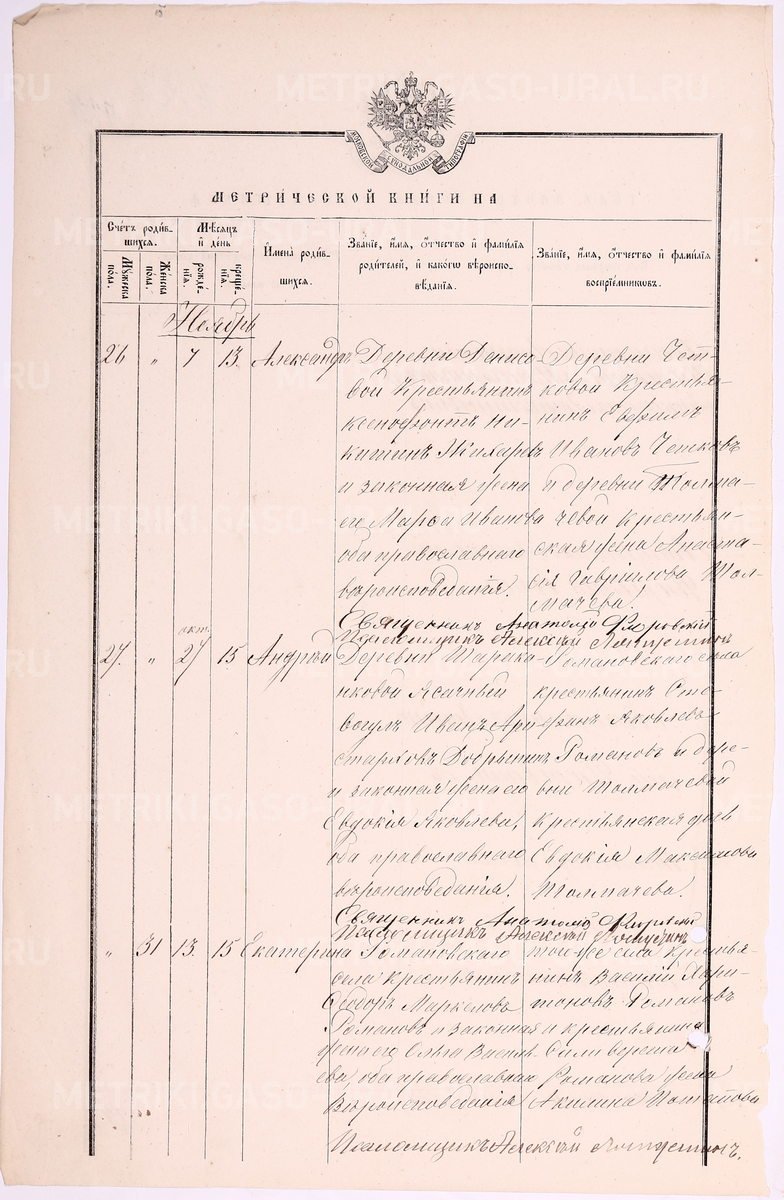 МОСКОВСКОЙ СѴНОДАЛЬНОЙ ТИПОГРАФІИ
МЕТРИ́ЧЕСКОЙ КНИ́ГИ НА
Сче́тъ роди́в-
шихся.
Мѣ́сяцъ
и҆ де́нь
И҆мена̀ роди́в-
шихся.
Зва́нїе, и҆́мѧ, ѻ҆́тчество и҆ фами́лїѧ
роди́телей, и҆ како́гѡ вѣроиспо-
вѣ́данїѧ.
Зва́нїе, и҆́мѧ, ѻ҆́тчество и҆ фами́лїѧ
воспрїе́мникѡвъ.
Мꙋ́жеска
по́ла.
Же́нска
по́ла.
рожде́-
нїѧ.
креще́-
нїѧ.
Ноябрь
26 " 7 13. Александръ
Деревни Денисо-
вой Крестьянинъ
Ксенофонтъ Ни-
китинъ Жихаревъ
и законная жена
его Марѳа Иванова
оба православнаго
вѣроисповѣданія.
Деревни Чет-
ковой Крестья-
нинъ Евфимъ
Ивановъ Четковъ
и деревни Толма-
чевой крестьян-
ская жена Анаста-
сія Гавріилова Тол-
мачева.
Священникъ Анатолій
Псаломщикъ Алексѣй
окт.
27. " 27 15 Андрей
Деревни Шарака-
нковой Ясачный
вогулъ Иванъ Ари-
старховъ Добрынинъ
и законная жена его
Евдокія Яковлева,
оба православнаго
вѣроисповѣданія.
Романовскаго села
крестьянинъ Сте-
фанъ Яковлевъ
Романовъ и дере-
вни Толмачевой
крестьянская дѣв.
Евдокія Максимова
Толмачева.
Священникъ Анатолій
Псаломщикъ Алексѣй
" 31 13. 15 Екатерина
Романовскаго
села крестьянинъ
Ѳеодоръ Маркеловъ
Романовъ и законная
жена его Ольга Василь-
ева, оба православнаго
вѣроисповѣданія
того же села кресть-
янинъ Василій Хари-
тоновъ Романовъ
и крестьянина
Романова жена
Акилина Потапова
Псаломщикъ Алексѣй
METRIKI.GASO-URAL.RU